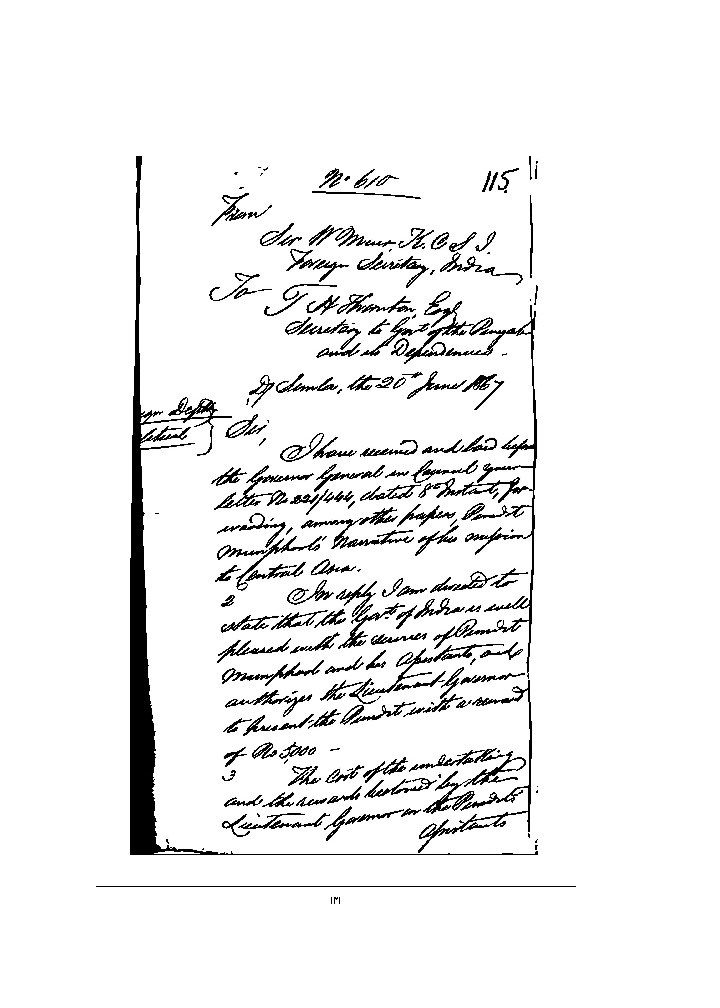 No 610
115
From
Sir W Muir K.C.S.I.
Foreign Secretary, India
To
T H Thornton, Esq
Secretary to Govt of the Punjab
and its Dependencies.
D/ Simla, the 20th June 1867
ign Deptt
litical
Sir,
I have received and laid before
the Governor General in Council your
letter No 221/444, dated 8th Instant, for-
warding, among other papers, Pundit
Munphool's Narrative of his mission
to Central Asia.
2 In reply I am directed to
state that the Govt of India is well
pleased with the services of Pundit
Munphool and his Assistants, and
authorizes the Lieutenant Governor
to present the Pundit with a reward
of Rs 5,000 -
3 The Cost of the undertaking
and the rewards bestowed by the
Lieutenant Governor on the Pundit's
Assistants